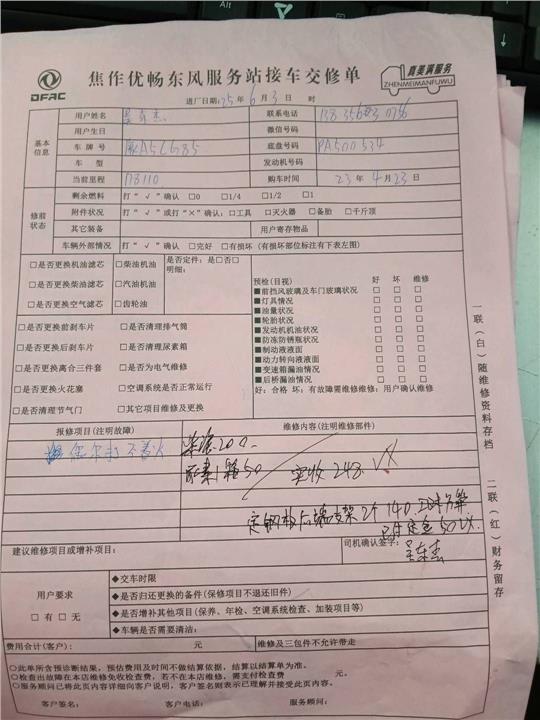 Alt
DFAC
焦作优畅东风服务站接车交修单
真美满服务
ZHENMEIMANFUWU
进厂日期: 25 年 6 月 3 日 时
基本信息
用户姓名
联系电话
用户生日
微信号码
车牌号 A5CG85
底盘号码 PA500534
车型
发动机号码
当前里程 173110
购车时间 23 年 4 月 23 日
修前状态
剩余燃料 打“√”确认 □0 □1/4 □1/2 □1
附件状况 打“√”或打“×”确认: □工具 □灭火器 □备胎 □千斤顶
其它装备 用户寄存物品
车辆外部情况 打“√”确认 □完好 □有损坏 (有损坏部位标注有下表左图)
□是否更换机油滤芯 □柴油机油 是否定件: 是□否□
明细:
□是否更换柴油滤芯 □汽油机油
□是否更换空气滤芯 □齿轮油
预检(目视) 好 坏 维修
■前挡风玻璃及车门玻璃状况 □ □ □
■灯具情况 □ □ □
■油量状况 □ □ □
■轮胎状况 □ □ □
■发动机机油状况 □ □ □
■防冻防锈瓶状况 □ □ □
■制动液液面 □ □ □
■动力转向液液面 □ □ □
■变速箱漏油情况 □ □ □
■后桥漏油情况 □ □ □
好: 合格 坏: 有故障需维修维修: 用户确认维修
□是否更换前刹车片 □是否清理排气筒
□是否更换后刹车片 □是否清理尿素箱
□是否更换离合三件套 □是否为电气维修
□是否更换火花塞 □空调系统是否正常运行
□是否清理节气门 □其它项目维修及更换
报修项目(注明故障) 维修内容(注明维修部件)
偶尔打不着火
200
尿素1箱50 实收 248.
后 支架2个 140.
已付定金50
建议维修项目或增补项目:
司机确认签字:
用户要求
□有 □无
◆交车时限
◆是否归还更换的备件(保修项目不退还旧件)
◆是否增补其他项目(保养、年检、空调系统检查、加装项目等)
◆车辆是否需要清洁:
费用合计(客户): 元 维修及三包件不允许带走
○此单所含预诊断结果,预估费用及时间不做结算依据,结算以结算单为准。
○检查出故障在本店维修免收检查费,若不在本店维修,需支付检查费 元。
○服务顾问已将此页内容详细向客户说明,客户签名则表示已理解并接受此页内容。
客户签名: 客户电话: 服务顾问:
一联(白)随维修资料存档
二联(红)财务留存